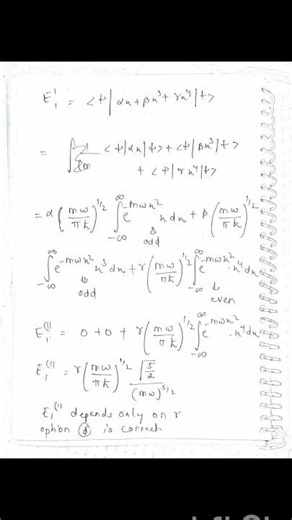 E₁' = <ψ|αx+βx³+γx⁴|ψ>
= <ψ|αx|ψ> + <ψ|βx³|ψ>
+ <ψ|γx⁴|ψ>
= α (mω/πħ)^1/2 ∫_-∞^∞ e^-mωx² x dx + β (mω/πħ)^1/2
odd
∫_-∞^∞ e^-mωx² x³ dx + γ (mω/πħ)^1/2 ∫_-∞^∞ e^-mωx² · x⁴ dx
odd even
E₁⁽¹⁾ = 0 + 0 + γ (mω/πħ)^1/2 ∫_-∞^∞ e^-mωx² · x⁴ dx
E₁⁽¹⁾ = γ (mω/πħ)^1/2 √5/2 / (mω)^5/2
E₁⁽¹⁾ depends only on γ
option is correct